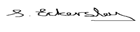 S. Eckersley